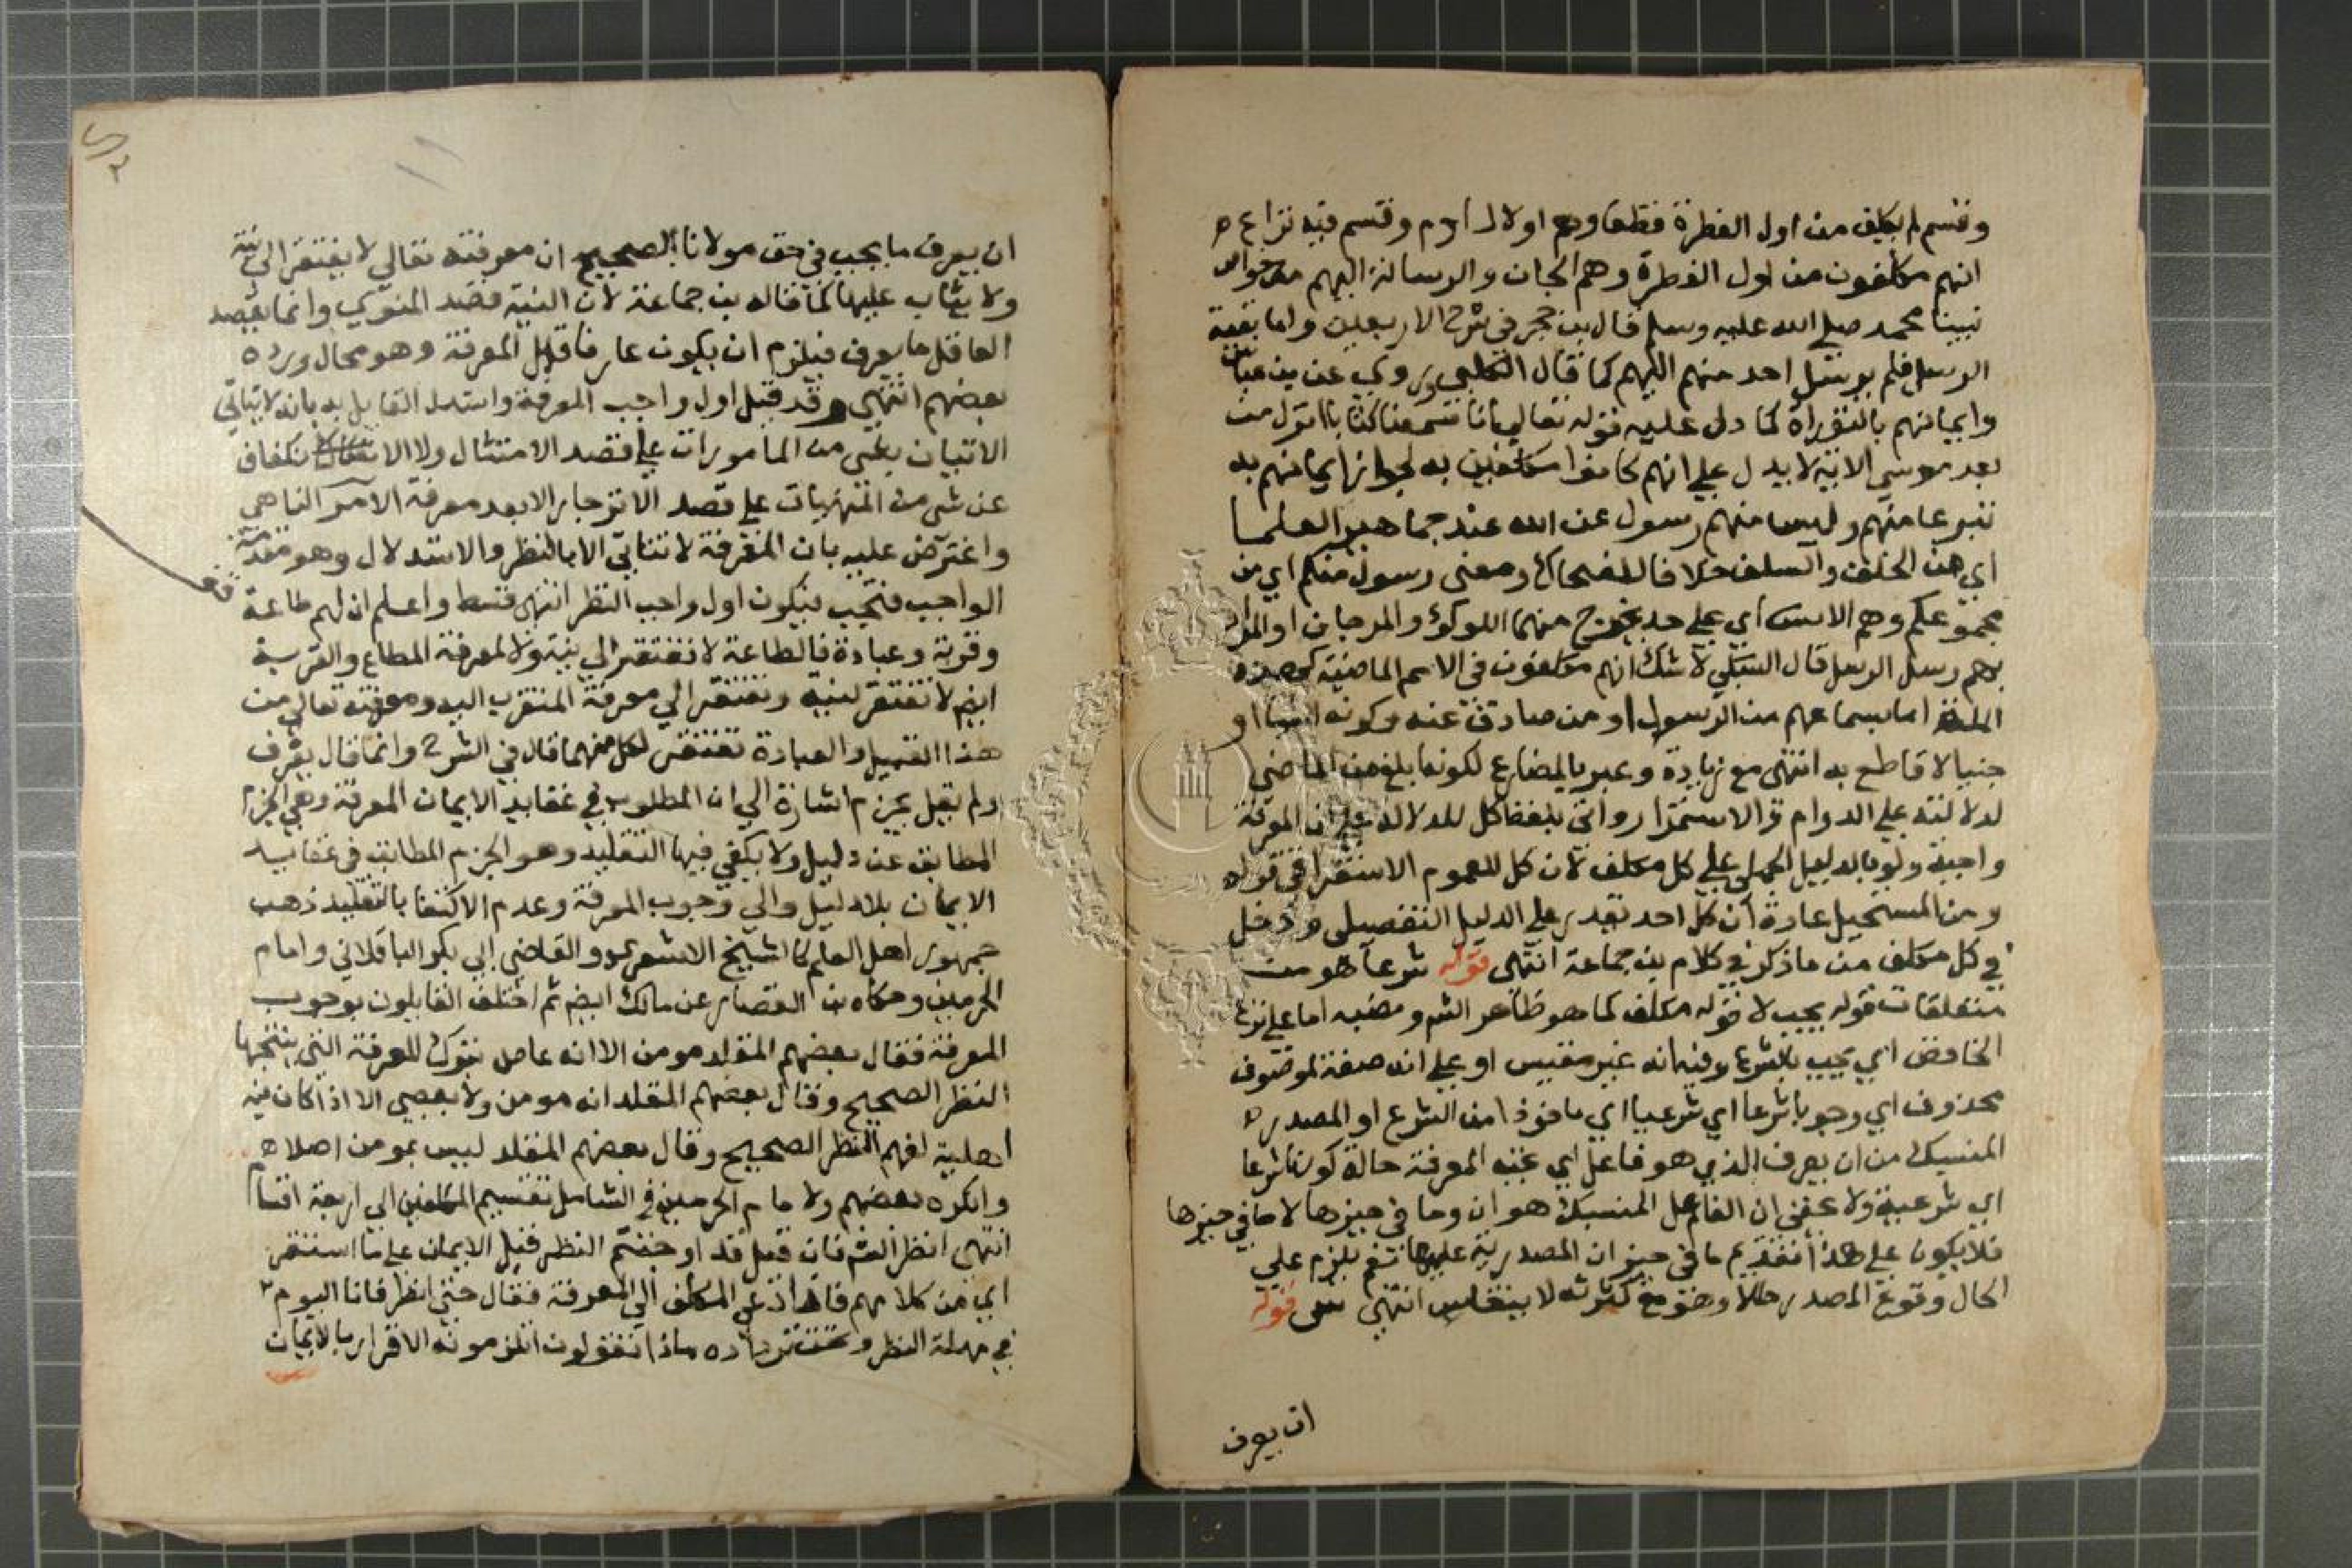 وقسم لم يكلف من اول الفطرة قطعا وهم اولاد ادم وقسم فيه نزاع ه
انهم مكلفون من اول الفطرة وهم الجان والرسالة اليهم من خواص
نبينا محمد صلي الله عليه وسلم قال بن حجر في شرح الاربعين واما بقية
الرسل فلم يرسل احد منهم اليهم كما قال الكلبي وروي عن بن عباس
وايمانهم بالتوراة كما دل عليه قوله تعالي انا سمعنا كتابا انزل من
بعد موسي الاية لا يدل علي انهم كانوا مكلفين به لجواز ايمانهم به
تبرعا منهم وليس منهم رسول عن الله عند جماهير العلما
اي من الخلف والسلف خلافا للضحاك ومعني رسول منكم اي من
مجموعكم وهم الانس اي علي حد يخرج منهما اللولؤ والمرجان او المراد
بهم رسل الرسل قال السبكي لا شك انهم مكلفون في الامم الماضية كهذه
الملة اما بسماعهم من الرسول او من صادق عنه وكونه انسا او
جنيا لا قاطع به انتهي مع زيادة وعبر بالمضارع لكونه ابلغ من الماضي
لدلالته علي الدوام والاستمرار واتي بلفظ كل للدلالة علي ان المعرفة
واجبة ولو بالدليل الجملي علي كل مكلف لان كل للعموم الاستغراقي قوله
ومن المستحيل عادة ان كل احد يقدر علي الدليل التفصيلي ودخل
في كل مكلف من ما ذكر في كلام بن جماعة انتهي قوله شرعا هو من
متعلقات قوله يجب لا قوله مكلف كما هو ظاهر الشم ونصبه اما علي نزع
الخافض اي يجب بالشرع وفيه انه غير مقيس او علي انه صفة لموصوف
محذوف اي وجوبا شرعا اي شرعيا اي ماخوذا من الشرع او المصدر ه
المنسبك من ان يعرف الذي هو فاعل اي يجب المعرفة حالة كونها شرعا
اي شرعية ولا يخفي ان الفاعل المنسبك هو ان وما في حيزها لا ما في حيزها
فلا يكون علي هذا تقديم ما في حيز ان المصدرية عليها نعم يلزم علي
الحال وقوع المصدر حالا وهو مع كثرته لا ينقاس انتهي قوله
ان يعرف
ان يعرف ما يجب في حق مولانا الصحيح ان معرفته تعالي لا يفتقر الي نية
ولا يثاب عليها كما قاله بن جماعة لان النية قصد المنوي وانما يقصد
العاقل ما يعرف فيلزم ان يكون عارفا قبل المعرفة وهو محال ورده
بعضهم انتهي وقد قيل اول واجب المعرفة واستدل القايل به بانه لا يتاتي
الاتيان بشي من المامورات علي قصد الامتثال ولا الانكفاف
عن شي من المنهيات علي قصد الانزجار الا بعد معرفة الامر الناهي
واعترض عليه بان المعرفة لا تتاتي الا بالنظر والاستدلال وهو مقدمة
الواجب فتجب فيكون اول واجب النظر انتهي قسط واعلم ان لهم طاعة
وقربة وعبادة فالطاعة لا تفتقر الي نية ولا لمعرفة المطاع والقربة
ايضا لا تفتقر لنية وتفتقر الي معرفة المتقرب اليه ومعرفته تعالي من
هذا القبيل والعبادة تفتقر لكل منهما قال في الشرح وانما قال يعرف
ولم يقل يجزم اشارة الي ان المطلوب في عقايد الايمان المعرفة وهي الجزم
المطابق عن دليل ولا يكفي فيها التقليد وهو الجزم المطابق في عقايد
الايمان بلا دليل والي وجوب المعرفة وعدم الاكتفا بالتقليد ذهب
جمهور اهل العلم كالشيخ الاشعري والقاضي ابي بكر الباقلاني وامام
الحرمين وحكاه بن القصار عن مالك ايضا ثم اختلف القايلون بوجوب
المعرفة فقال بعضهم المقلد مومن الا انه عاص بترك المعرفة التي ينتجها
النظر الصحيح وقال بعضهم المقلد انه مومن ولا يعصي الا اذا كان فيه
اهلية لفهم النظر الصحيح وقال بعضهم المقلد ليس بمومن اصلا ه
وانكره بعضهم ولامام الحرمين في الشامل تقسيم المكلفين الي اربعة اقسام
انتهي انظر الشم فان قيل قد اوجبتم النظر قبل الايمان علي ما استقر
اي من كلامهم فاذا دعي المكلف الي المعرفة فقال حتي انظر فانا اليوم
في مهلة النظر وتحت ترداده ماذا تقولون اتلزمونه الاقرار بالايمان